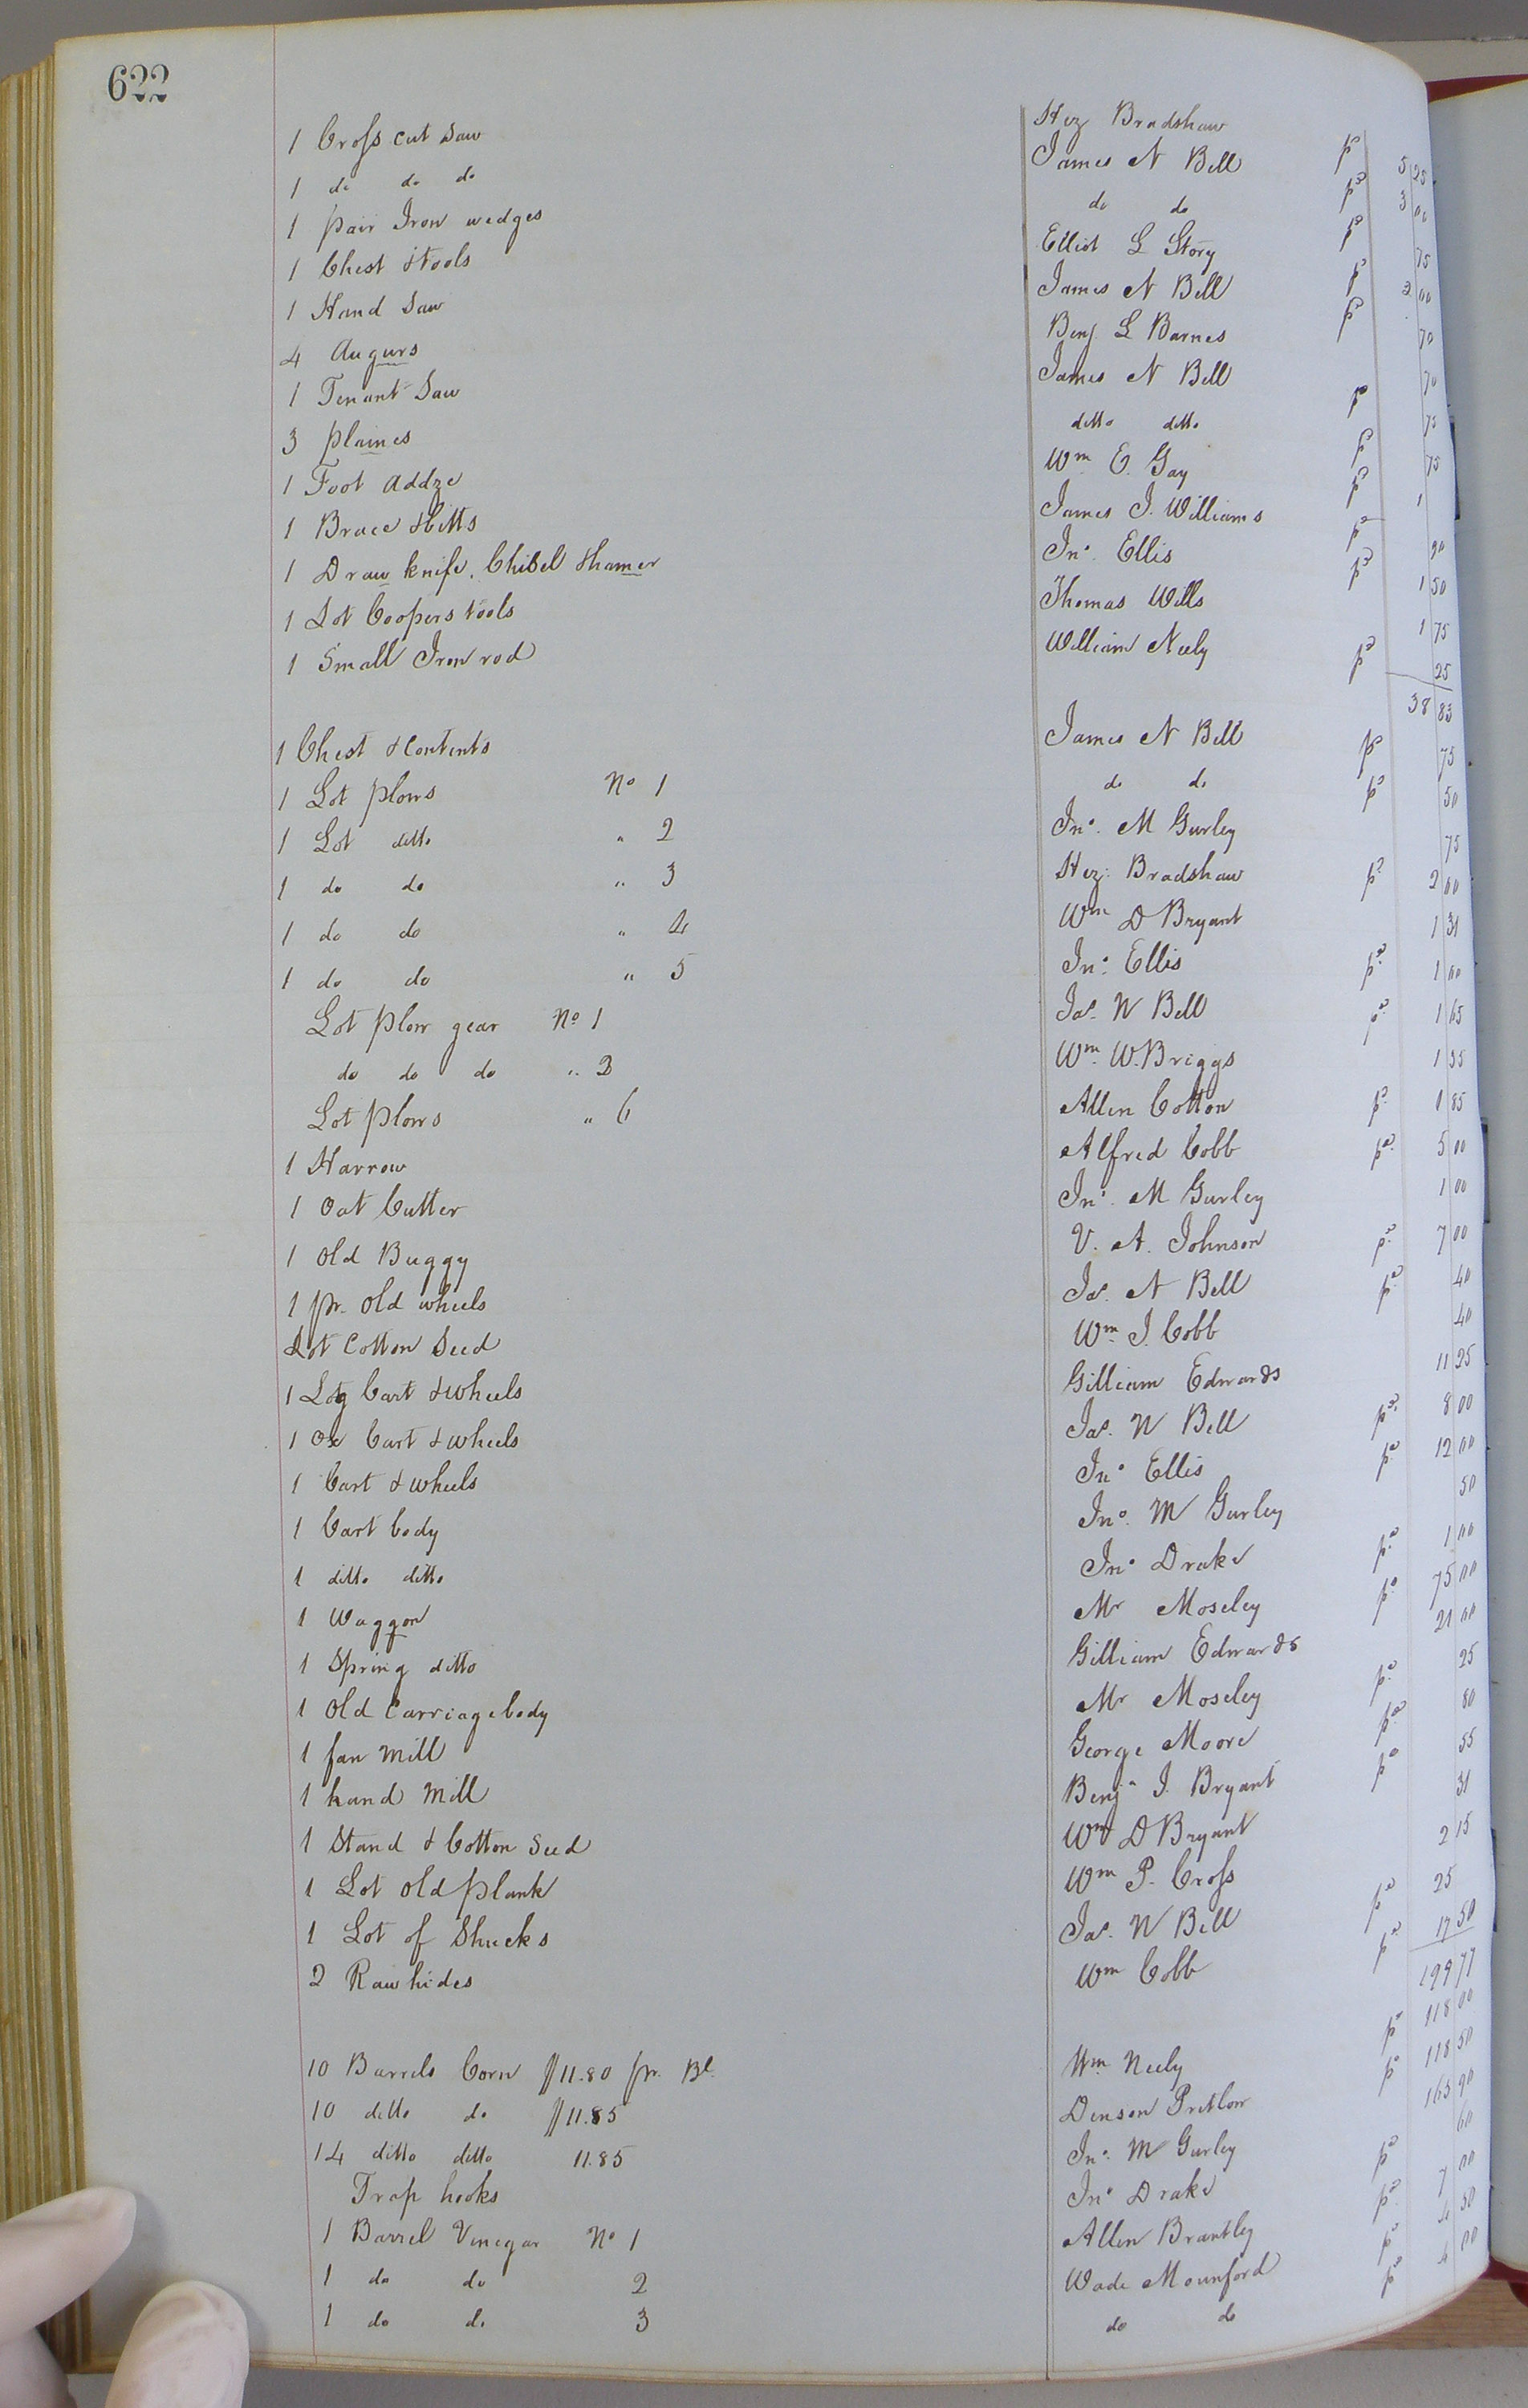 622
1 Cross cut Saw Hez Bradshaw pd 5 25
1 do do do James N Bell pd 3 00
1 pair Iron wedges do do pd 75
1 Chest & tools Elliot L Story pd 2 00
1 Hand Saw James N Bell pd 70
4 Augurs Benj L Barnes 70
1 Tenant Saw James N Bell pd 75
3 plaines ditto ditto pd 75
1 Foot addze Wm E. Gay pd 1
1 Brace & bitts James J. Williams pd 90
1 Draw knife, Chisel & hamer Jno. Ellis pd 1 50
1 Lot Coopers tools Thomas Wills 1 75
1 Small Iron rod William Neely pd 25
38 83
1 Chest & Contents James N Bell pd 75
1 Lot plows No 1 do do pd 50
1 Lot ditto " 2 Jno. M Gurley 75
1 do do " 3 Hez. Bradshaw pd 2 00
1 do do " 4 Wm D Bryant 1 31
1 do do " 5 Jno. Ellis pd 1 00
Lot plow gear No 1 Jas. N Bell pd 1 65
do do do " 2 Wm. W. Briggs 1 35
Lot plows " 6 Allen Cotton pd 1 85
1 Harrow Alfred Cobb pd 5 00
1 Oat Cutter Jno. M Gurley 1 00
1 Old Buggy V. A. Johnson pd 7 00
1 pr. old wheels Jas. N Bell pd 40
Lot Cotton Seed Wm J. Cobb 40
1 Log Cart & wheels Gilliam Edwards 11 25
1 Ox Cart & wheels Jas. N Bell pd 8 00
1 Cart & wheels Jno Ellis pd 12 00
1 Cart body Jno. M Gurley 50
1 ditto ditto Jno Drake pd 1 00
1 Waggon Mr Moseley pd 75 00
1 Spring ditto Gilliam Edwards 21 00
1 Old Carriage body Mr Moseley pd 25
1 fan Mill George Moore pd 80
1 hand Mill Benja J. Bryant pd 55
1 Stand & Cotton Seed Wm D Bryant 31
1 Lot old plank Wm P. Cross 2 15
1 Lot of Shucks Jas. N Bell pd 25
2 Raw hides Wm Cobb pd 17 50
199 77
10 Barrels Corn $11.80 pr. Bl. Wm. Neely pd 118 00
10 ditto do $11.85 Denson Pretlow pd 118 50
14 ditto ditto 11.85 Jno. M Gurley 165 90
Trap hooks Jno Drake pd 60
1 Barrel Vinegar No 1 Allen Brantley pd 7 00
1 do do 2 Wade Mounford pd 4 50
1 do do 3 do do pd 4 00